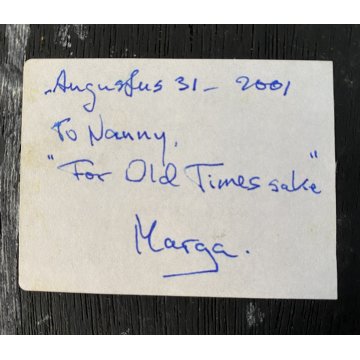 Augustus 31 - 2001
To Nanny,
"For Old Times sake"
Marga.